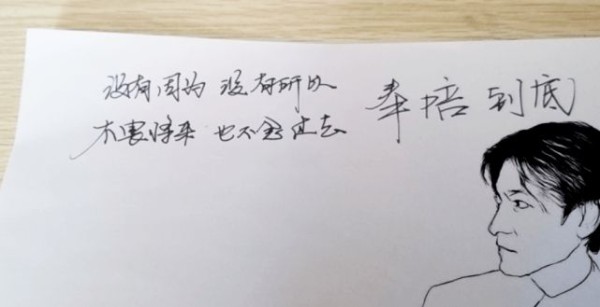 没有因为 没有所以
不畏将来 也不念过去
奉陪到底